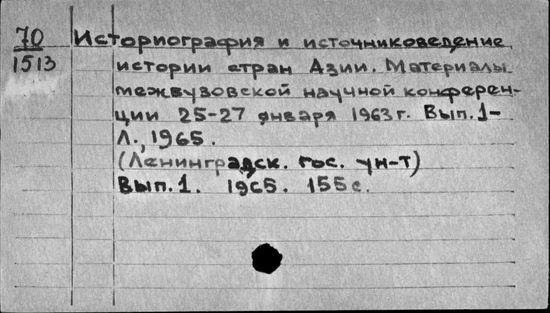 70 Историография и источниковедение
1513 истории стран Азии. Материалы
межвузовской научной конферен-
ции 25-27 января 1963 г. Вып. 1-
Л., 1965.
(Ленинградск. гос. ун-т)
Вып. 1. 1965. 155 с.